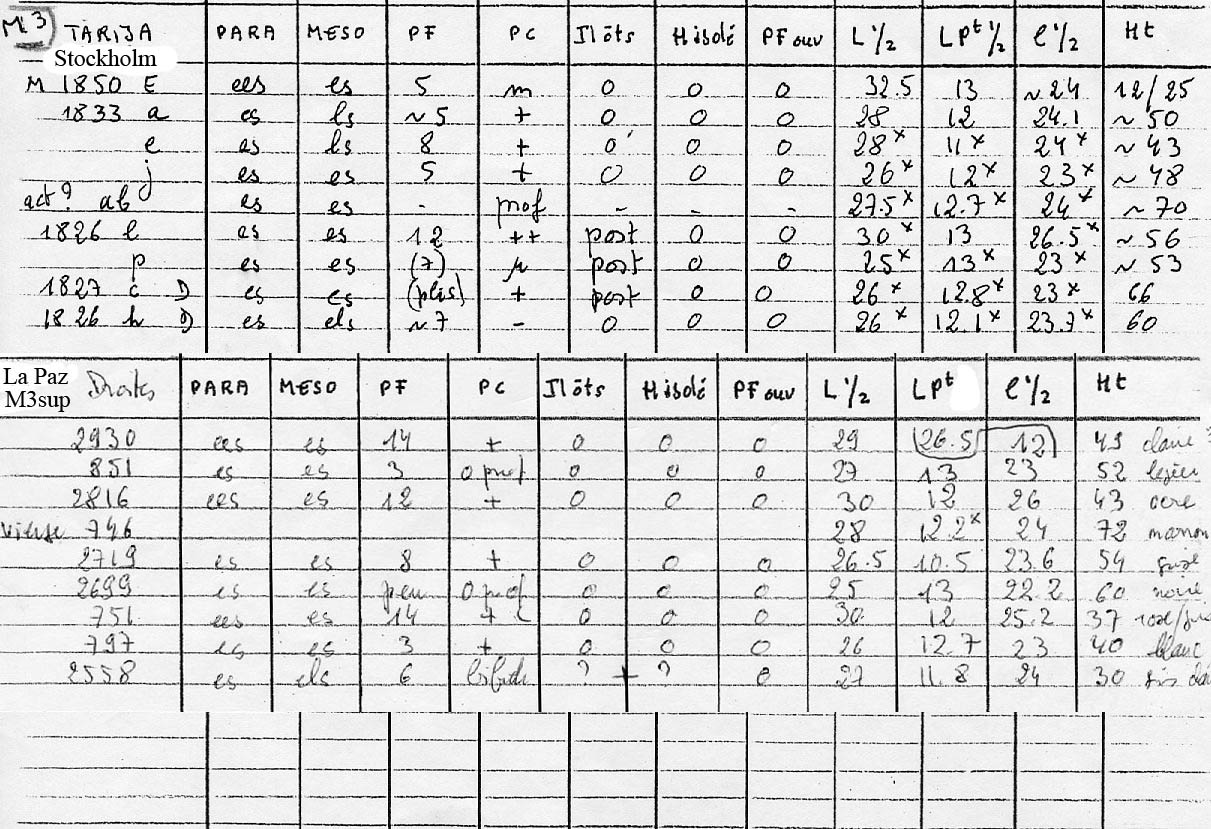 M3) TARIJA PARA MESO PF PC Ilôts H isolé PF ouv L 1/2 LPt 1/2 l 1/2 Ht
Stockholm
M 1850 E ees es 5 m 0 0 0 32.5 13 ~24 12/25
1833 a es ls ~5 + 0 0 0 28 12 24.1 ~50
e es ls 8 + 0 0 0 28x 11x 24x ~43
j es es 5 + 0 0 0 26x 12x 23x ~48
act? ab es es - prof - - - 27.5x 12.7x 24x ~70
1826 l es es 12 ++ post 0 0 30x 13 26.5x ~56
p es es (7) post 0 0 25x 13x 23x ~53
1827 c D es es (plis) + post 0 0 26x 12.8x 23x 66
1826 h D es els ~7 - 0 0 0 26x 12.1x 23.7x 60
La Paz Droites PARA MESO PF PC Ilôts H isolé PF ouv L 1/2 LPt l 1/2 Ht
M3sup
2930 ees es 14 + 0 0 0 29 26.5 12 claire
851 es es 3 0 prof 0 0 0 27 13 23 52
2816 ees es 12 + 0 0 0 30 12 26 43 ocre
vierge 746 28 12.2x 24 72 marron
2719 es es 8 + 0 0 0 26.5 10.5 23.6 54 grise
2699 es es peu 0 prof 0 0 0 25 13 22.2 60 noire
751 ees es 14 + 0 0 0 30 12 25.2 37 rose/gris
797 es es 3 + 0 0 0 26 12.7 23 40 blanc
2558 es els 6 bifide ? + ? 0 27 11.8 24 30 gris clai